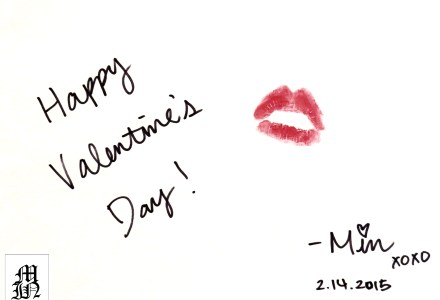 Happy
Valentine's
Day!
- Min
xoxo
2.14.2015